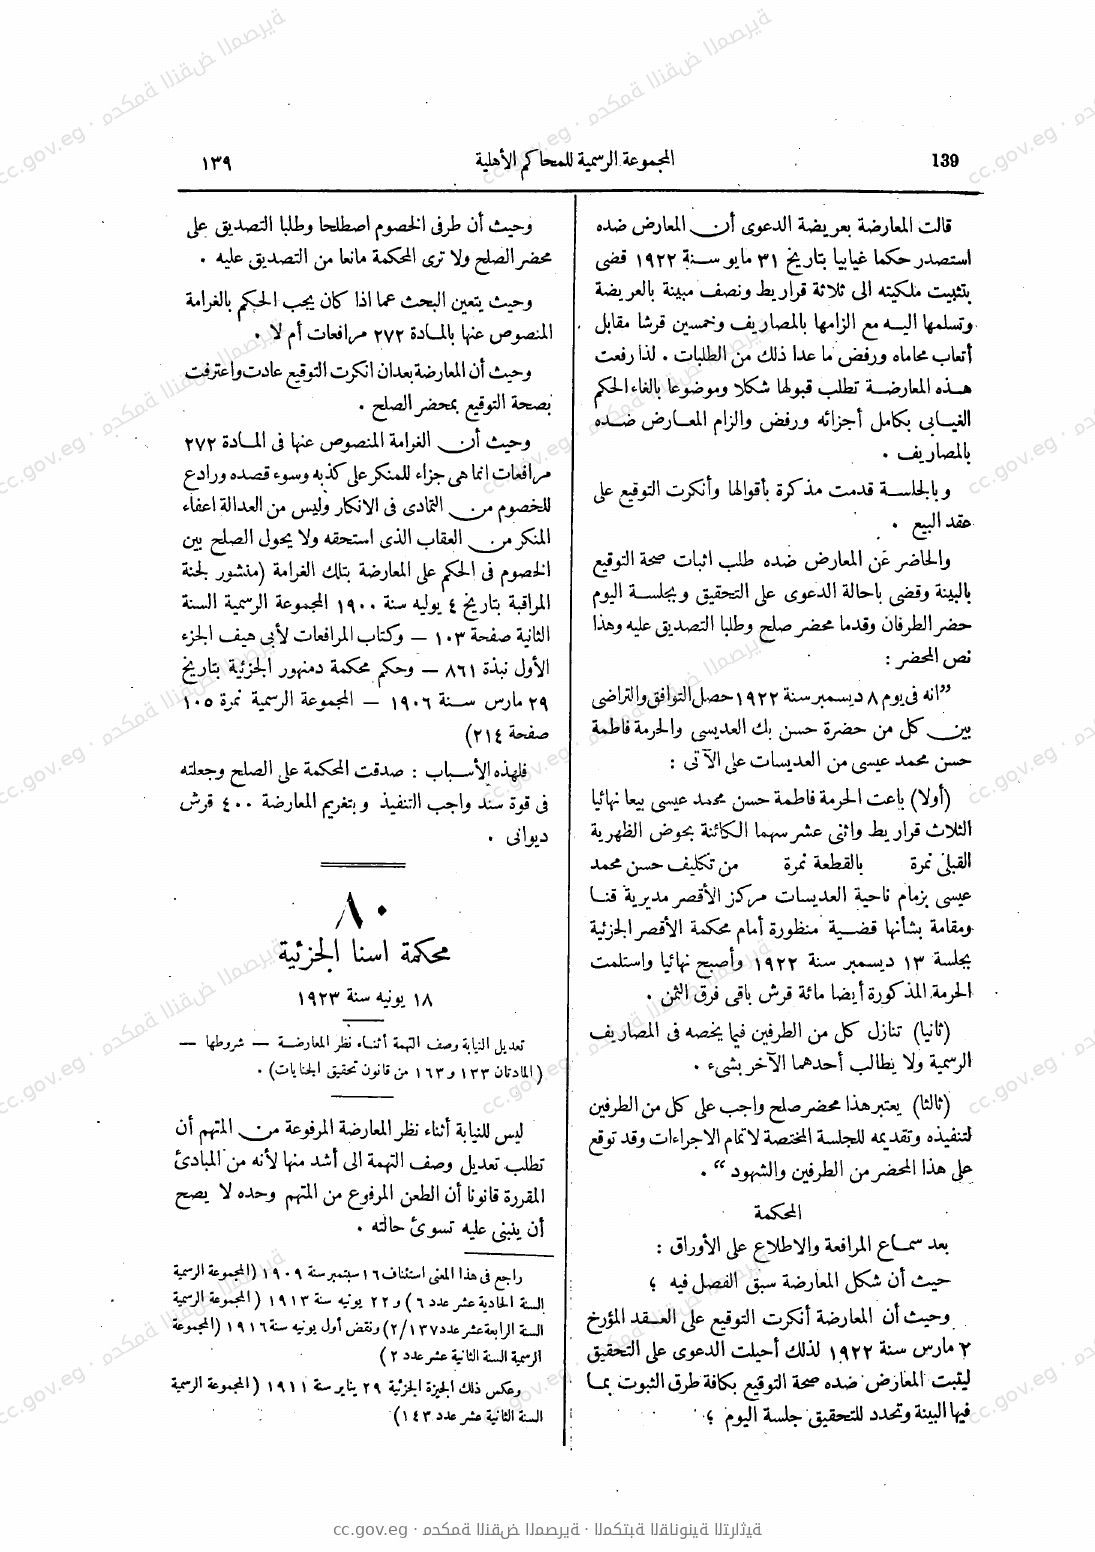 139
المجموعة الرسمية للمحاكم الأهلية
١٣٩
قالت المعارضة بعريضة الدعوى أن المعارض ضده
استصدر حكما غيابيا بتاريخ ٣١ مايو سنة ١٩٢٢ قضى
بتثبيت ملكيته الى ثلاثة قراريط ونصف مبينة بالعريضة
وتسلمها اليه مع الزامها بالمصاريف وخمسين قرشا مقابل
أتعاب محاماه ورفض ما عدا ذلك من الطلبات . لذا رفعت
هذه المعارضة تطلب قبولها شكلا وموضوعا بالغاء الحكم
الغيابى بكامل أجزائه ورفض والزام المعارض ضده
بالمصاريف .
وبالجلسة قدمت مذكرة بأقوالها وأنكرت التوقيع على
عقد البيع .
والحاضر عن المعارض ضده طلب اثبات صحة التوقيع
بالبينة وقضى باحالة الدعوى على التحقيق وبجلسة اليوم
حضر الطرفان وقدما محضر صلح وطلبا التصديق عليه وهذا
نص المحضر :
”انه فى يوم ٨ ديسمبر سنة ١٩٢٢ حصل التوافق والتراضى
بين كل من حضرة حسن بك العديسى والحرمة فاطمة
حسن محمد عيسى من العديسات على الآتى :
(أولا) باعت الحرمة فاطمة حسن محمد عيسى بيعا نهائيا
الثلاث قراريط واثنى عشر سهما الكائنة بحوض الظهرية
القبلى نمرة بالقطعة نمرة من تكليف حسن محمد
عيسى بزمام ناحية العديسات مركز الأقصر مديرية قنا
ومقامة بشأنها قضية منظورة أمام محكمة الأقصر الجزئية
بجلسة ١٣ ديسمبر سنة ١٩٢٢ وأصبح نهائيا واستلمت
الحرمة المذكورة أيضا مائة قرش باقى فرق الثمن .
(ثانيا) تنازل كل من الطرفين فيما يخصه فى المصاريف
الرسمية ولا يطالب أحدهما الآخر بشىء .
(ثالثا) يعتبر هذا محضر صلح واجب على كل من الطرفين
لتنفيذه وتقديمه للجلسة المختصة لاتمام الاجراءات وقد توقع
على هذا المحضر من الطرفين والشهود “ .
المحكمة
بعد سماع المرافعة والاطلاع على الأوراق :
حيث أن شكل المعارضة سبق الفصل فيه ؛
وحيث أن المعارضة أنكرت التوقيع على العقد المؤرخ
٢ مارس سنة ١٩٢٢ لذلك أحيلت الدعوى على التحقيق
ليثبت المعارض ضده صحة التوقيع بكافة طرق الثبوت بما
فيها البينة وتحدد للتحقيق جلسة اليوم ؛
وحيث أن طرفى الخصوم اصطلحا وطلبا التصديق على
محضر الصلح ولا ترى المحكمة مانعا من التصديق عليه .
وحيث يتعين البحث عما اذا كان يجب الحكم بالغرامة
المنصوص عنها بالمادة ٢٧٢ مرافعات أم لا .
وحيث أن المعارضة بعدان انكرت التوقيع عادت واعترفت
بصحة التوقيع بمحضر الصلح .
وحيث أن الغرامة المنصوص عنها فى المادة ٢٧٢
مرافعات انما هى جزاء للمنكر على كذبه وسوء قصده ورادع
للخصوم من التمادى فى الانكار وليس من العدالة اعفاء
المنكر من العقاب الذى استحقه ولا يحول الصلح بين
الخصوم فى الحكم على المعارضة بتلك الغرامة (منشور لجنة
المراقبة بتاريخ ٤ يوليه سنة ١٩٠٠ المجموعة الرسمية السنة
الثانية صفحة ١٠٣ — وكتاب المرافعات لأبى هيف الجزء
الأول نبذة ٨٦١ — وحكم محكمة دمنهور الجزئية بتاريخ
٢٩ مارس سنة ١٩٠٦ — المجموعة الرسمية نمرة ١٠٥
صفحة ٢١٤)
فلهذه الأسباب : صدقت المحكمة على الصلح وجعلته
فى قوة سند واجب التنفيذ وبتغريم المعارضة ٤٠٠ قرش
ديوانى .
٨٠
محكمة اسنا الجزئية
١٨ يونيه سنة ١٩٢٣
تعديل النيابة وصف التهمة أثناء نظر المعارضة — شروطها —
(المادتان ١٣٣ و ١٦٣ من قانون تحقيق الجنايات) .
ليس للنيابة أثناء نظر المعارضة المرفوعة من المتهم أن
تطلب تعديل وصف التهمة الى أشد منها لأنه من المبادئ
المقررة قانونا أن الطعن المرفوع من المتهم وحده لا يصح
أن ينبنى عليه تسوئ حالته .
راجع فى هذا المعنى استئناف ١٦ سبتمبر سنة ١٩٠٩ (المجموعة الرسمية
السنة الحادية عشر عدد ٦) و ٢٢ يونيه سنة ١٩١٣ (المجموعة الرسمية
السنة الرابعة عشر عدد ٢/١٣٧) ونقض أول يونيه سنة ١٩١٦ (المجموعة
الرسمية السنة الثانية عشر عدد ٢)
وعكس ذلك الجيزة الجزئية ٢٩ يناير سنة ١٩١١ (المجموعة الرسمية
السنة الثانية عشر عدد ١٤٣)
cc.gov.eg · محكمة النقض المصرية · المكتبة القانونية التراثية